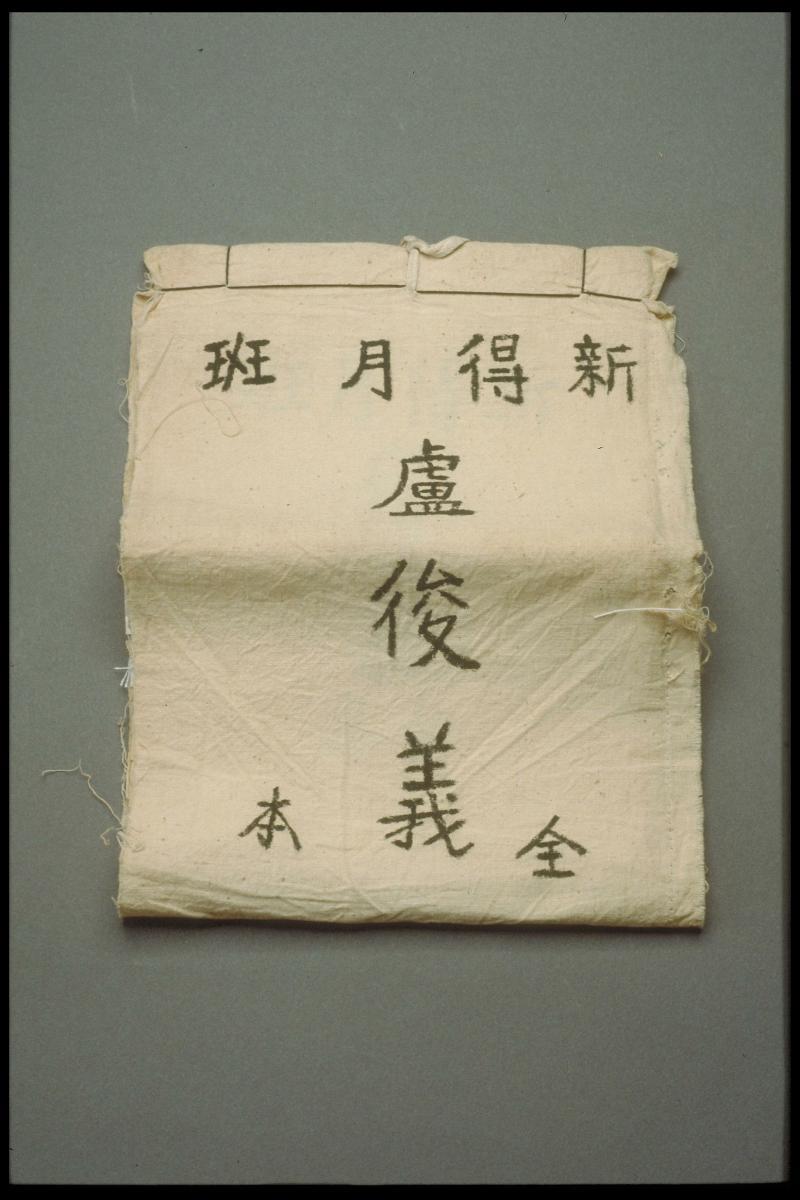 新得月班
盧俊義
全本